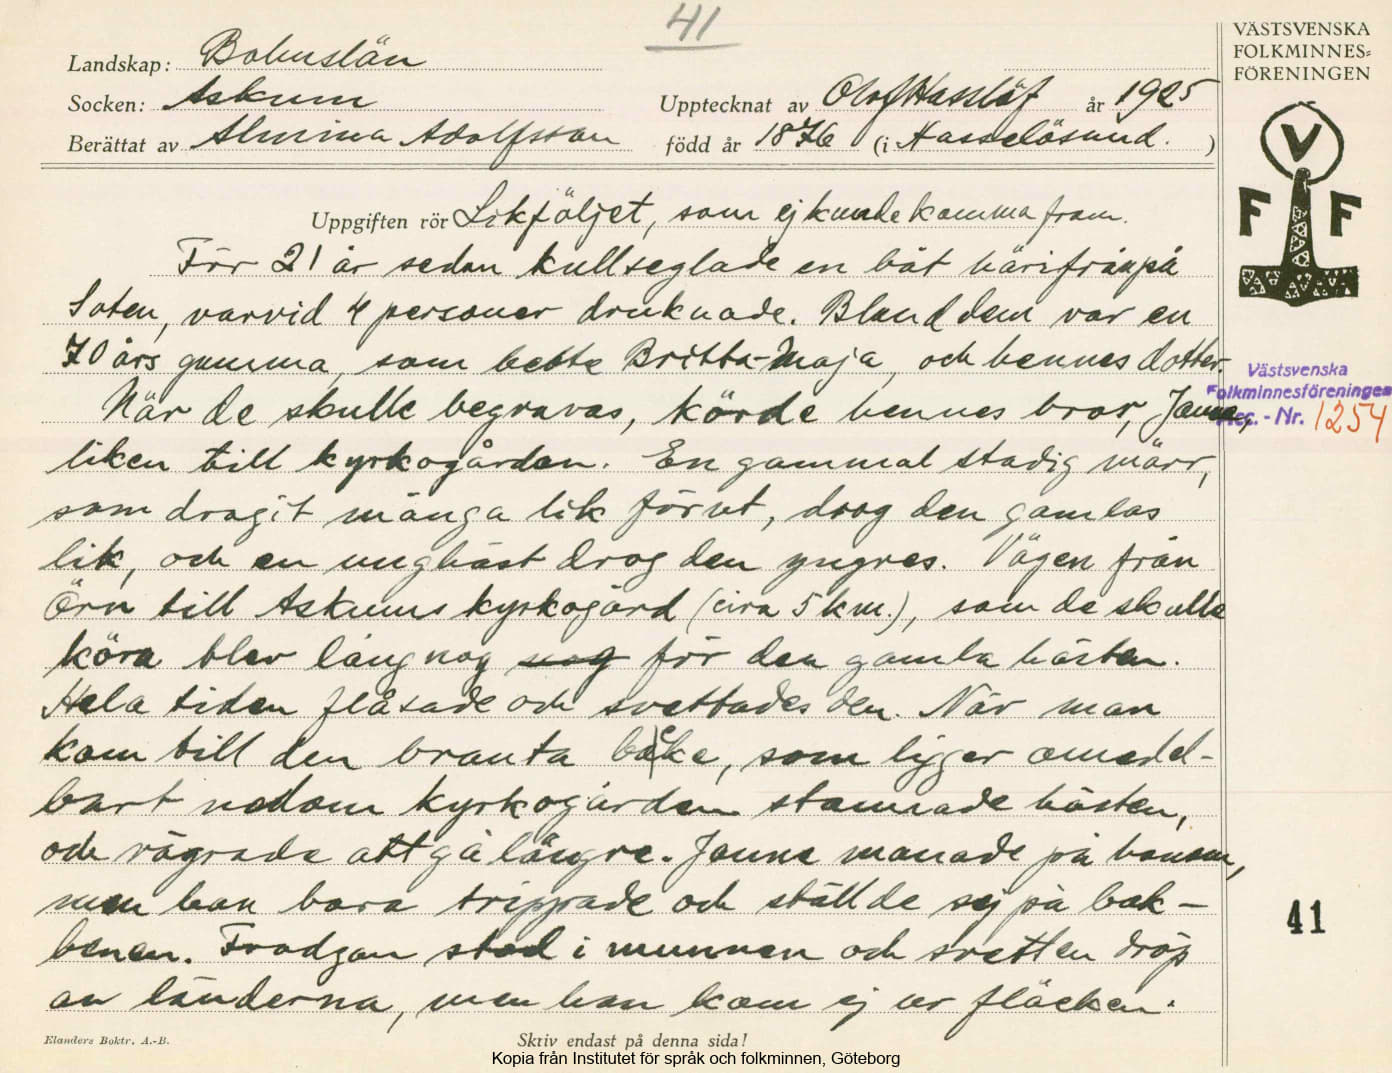 41
Landskap: Bohuslän
Socken: Askum
Upptecknat av Olof Hasslöf år 1925
Berättat av Almina Adolfsson född år 1876 (i Hasselösund. )
VÄSTSVENSKA
FOLKMINNES=
FÖRENINGEN
V
F F
Uppgiften rör Likföljet, som ej kunde komma fram.
För 21 år sedan kullseglade en båt härifrån på
Soten, varvid 4 personer druknade. Bland dem var en
70 års gumma, som hette Britta-Maja, och hennes dotter.
När de skulle begravas, körde hennes bror, Janne,
liken till kyrkogården. En gammal stadig märr,
som dragit många lik förut, drog den gamlas
lik, och en unghäst drog den yngres. Vägen från
Örn till Askums kyrkogård (cira 5 km.), som de skulle
köra blev lång nog nog för den gamla hästen.
Hela tiden flåsade och svettades den. När man
kom till den branta backe, som ligger omedel-
bart nedom kyrkogården stannade hästen,
och vägrade att gå längre. Janne manade på honom,
men han bara trippade och ställde sej på bak-
benen. Fradgan stod i munnen och svetten dröp
av länderna, men han kom ej ur fläcken.
Västsvenska
Folkminnesföreningen
Acc. - Nr. 1254
41
Elanders Boktr. A.-B.
Skriv endast på denna sida!
Kopia från Institutet för språk och folkminnen, Göteborg